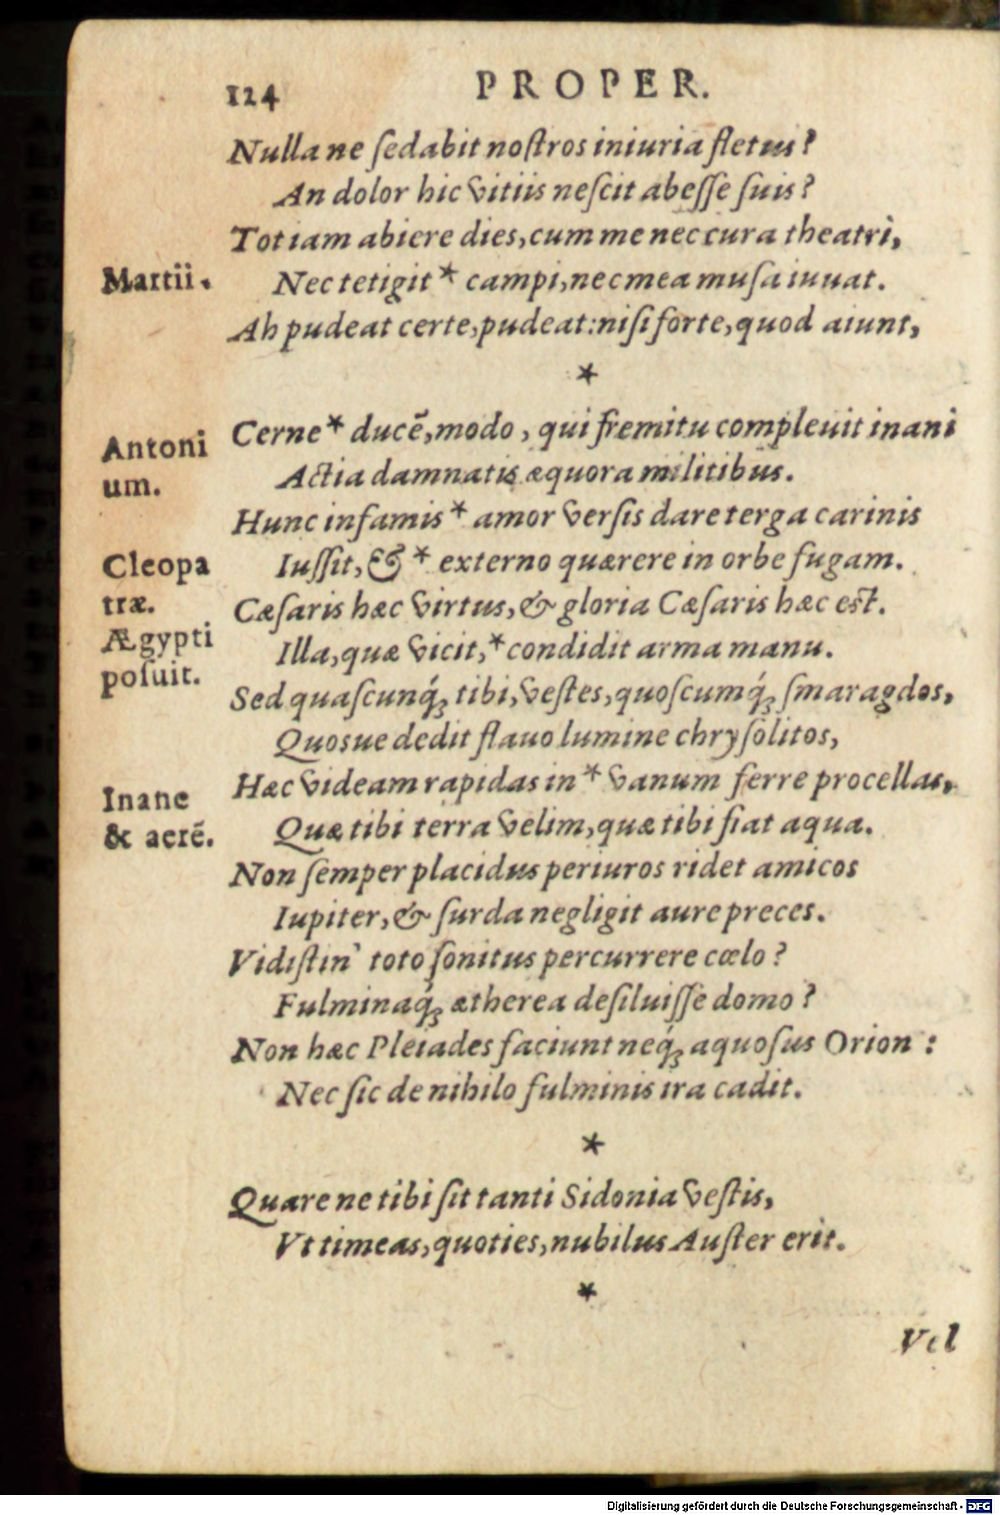 124 PROPER.
Nullane ſedabit noſtros iniuria fletus?
An dolor hic vitiis neſcit abeſſe ſuis?
Tot iam abiere dies, cum me nec cura theatri,
Martii. Nec tetigit * campi, nec mea muſa iuuat.
Ah pudeat certe, pudeat: niſi forte, quod aiunt,
*
Antoni Cerne * ducē, modo, qui fremitu compleuit inani
um. Actia damnatis æquora militibus.
Hunc infamis * amor verſis dare terga carinis
Cleopa Iuſſit, & * externo quærere in orbe fugam.
træ. Cæſaris hæc virtus, & gloria Cæſaris hæc eſt.
Ægypti Illa, quæ vicit, * condidit arma manu.
poſuit. Sed quaſcunq́; tibi, veſtes, quoſcumq́; ſmaragdos,
Quosue dedit flauo lumine chryſolitos,
Hæc videam rapidas in * vanum ferre procellas,
Inane
& aerē. Quæ tibi terra velim, quæ tibi fiat aqua.
Non ſemper placidus periuros ridet amicos
Iupiter, & ſurda negligit aure preces.
Vidiſtin' toto ſonitus percurrere cœlo?
Fulminaq́; ætherea deſiluiſſe domo?
Non hæc Pleiades faciunt neq́; aquoſus Orion:
Nec ſic de nihilo fulminis ira cadit.
*
Quare ne tibi ſit tanti Sidonia veſtis,
Vt timeas, quoties, nubilus Auſter erit.
*
Vel
Digitalisierung gefördert durch die Deutsche Forschungsgemeinschaft - DFG